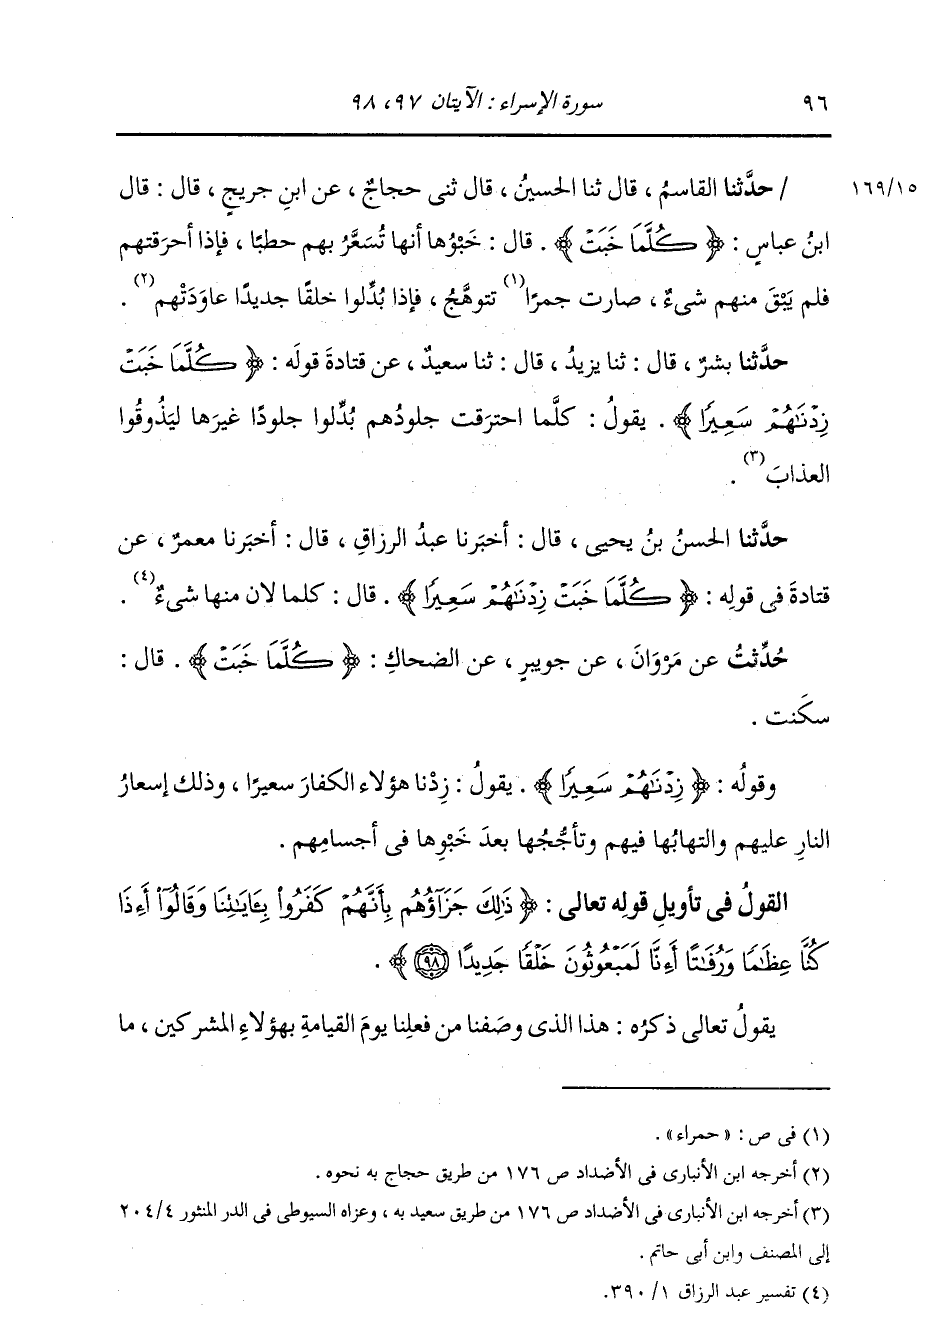 ٩٦ سورة الإسراء : الآيتان ٩٧، ٩٨
١٦٩/١٥ / حدَّثنا القاسمُ ، قال ثنا الحسينُ ، قال ثنى حجاجٌ ، عن ابنِ جريجٍ ، قال : قال
ابنُ عباسٍ : ﴿ كُلَّمَا خَبَتْ ﴾ . قال : خَبْوُها أنها تُسَعَّرُ بهم حطبًا ، فإذا أحرَقتهم
فلم يَبْقَ منهم شىءٌ ، صارت جمرًا(١) تتوهَّجُ ، فإذا بُدِّلوا خلقًا جديدًا عاوَدَتْهم(٢) .
حدَّثنا بشرٌ ، قال : ثنا يزيدُ ، قال : ثنا سعيدٌ ، عن قتادةَ قولَه : ﴿ كُلَّمَا خَبَتْ
زِدْنَٰهُمْ سَعِيرًا ﴾ . يقولُ : كلَّما احترَقت جلودُهم بُدِّلوا جلودًا غيرَها ليَذُوقُوا
العذابَ(٣) .
حدَّثنا الحسنُ بنُ يحيى ، قال : أخبَرنا عبدُ الرزاقِ ، قال : أخبَرنا معمرٌ ، عن
قتادةَ فى قولِه : ﴿ كُلَّمَا خَبَتْ زِدْنَٰهُمْ سَعِيرًا ﴾ . قال : كلما لان منها شىءٌ(٤) .
حُدِّثتُ عن مَرْوَانَ ، عن جويبرٍ ، عن الضحاكِ : ﴿ كُلَّمَا خَبَتْ ﴾ . قال :
سكَنت .
وقولُه : ﴿ زِدْنَٰهُمْ سَعِيرًا ﴾ . يقولُ : زِدْنا هؤلاء الكفارَ سعيرًا ، وذلك إسعارُ
النارِ عليهم والتهابُها فيهم وتأجُّجُها بعدَ خَبْوِها فى أجسامِهم .
القولُ فى تأويلِ قولِه تعالى : ﴿ ذَٰلِكَ جَزَآؤُهُم بِأَنَّهُمْ كَفَرُوا۟ بِـَٔايَٰتِنَا وَقَالُوٓا۟ أَءِذَا
كُنَّا عِظَٰمًا وَرُفَٰتًا أَءِنَّا لَمَبْعُوثُونَ خَلْقًا جَدِيدًا ٩٨ ﴾ .
يقولُ تعالى ذكرُه : هذا الذى وصَفنا من فعلِنا يومَ القيامةِ بهؤلاءِ المشركين ، ما
(١) فى ص : « حمراء » .
(٢) أخرجه ابن الأنبارى فى الأضداد ص ١٧٦ من طريق حجاج به نحوه .
(٣) أخرجه ابن الأنبارى فى الأضداد ص ١٧٦ من طريق سعيد به ، وعزاه السيوطى فى الدر المنثور ٢٠٤/٤
إلى المصنف وابن أبى حاتم .
(٤) تفسير عبد الرزاق ١/ ٣٩٠.